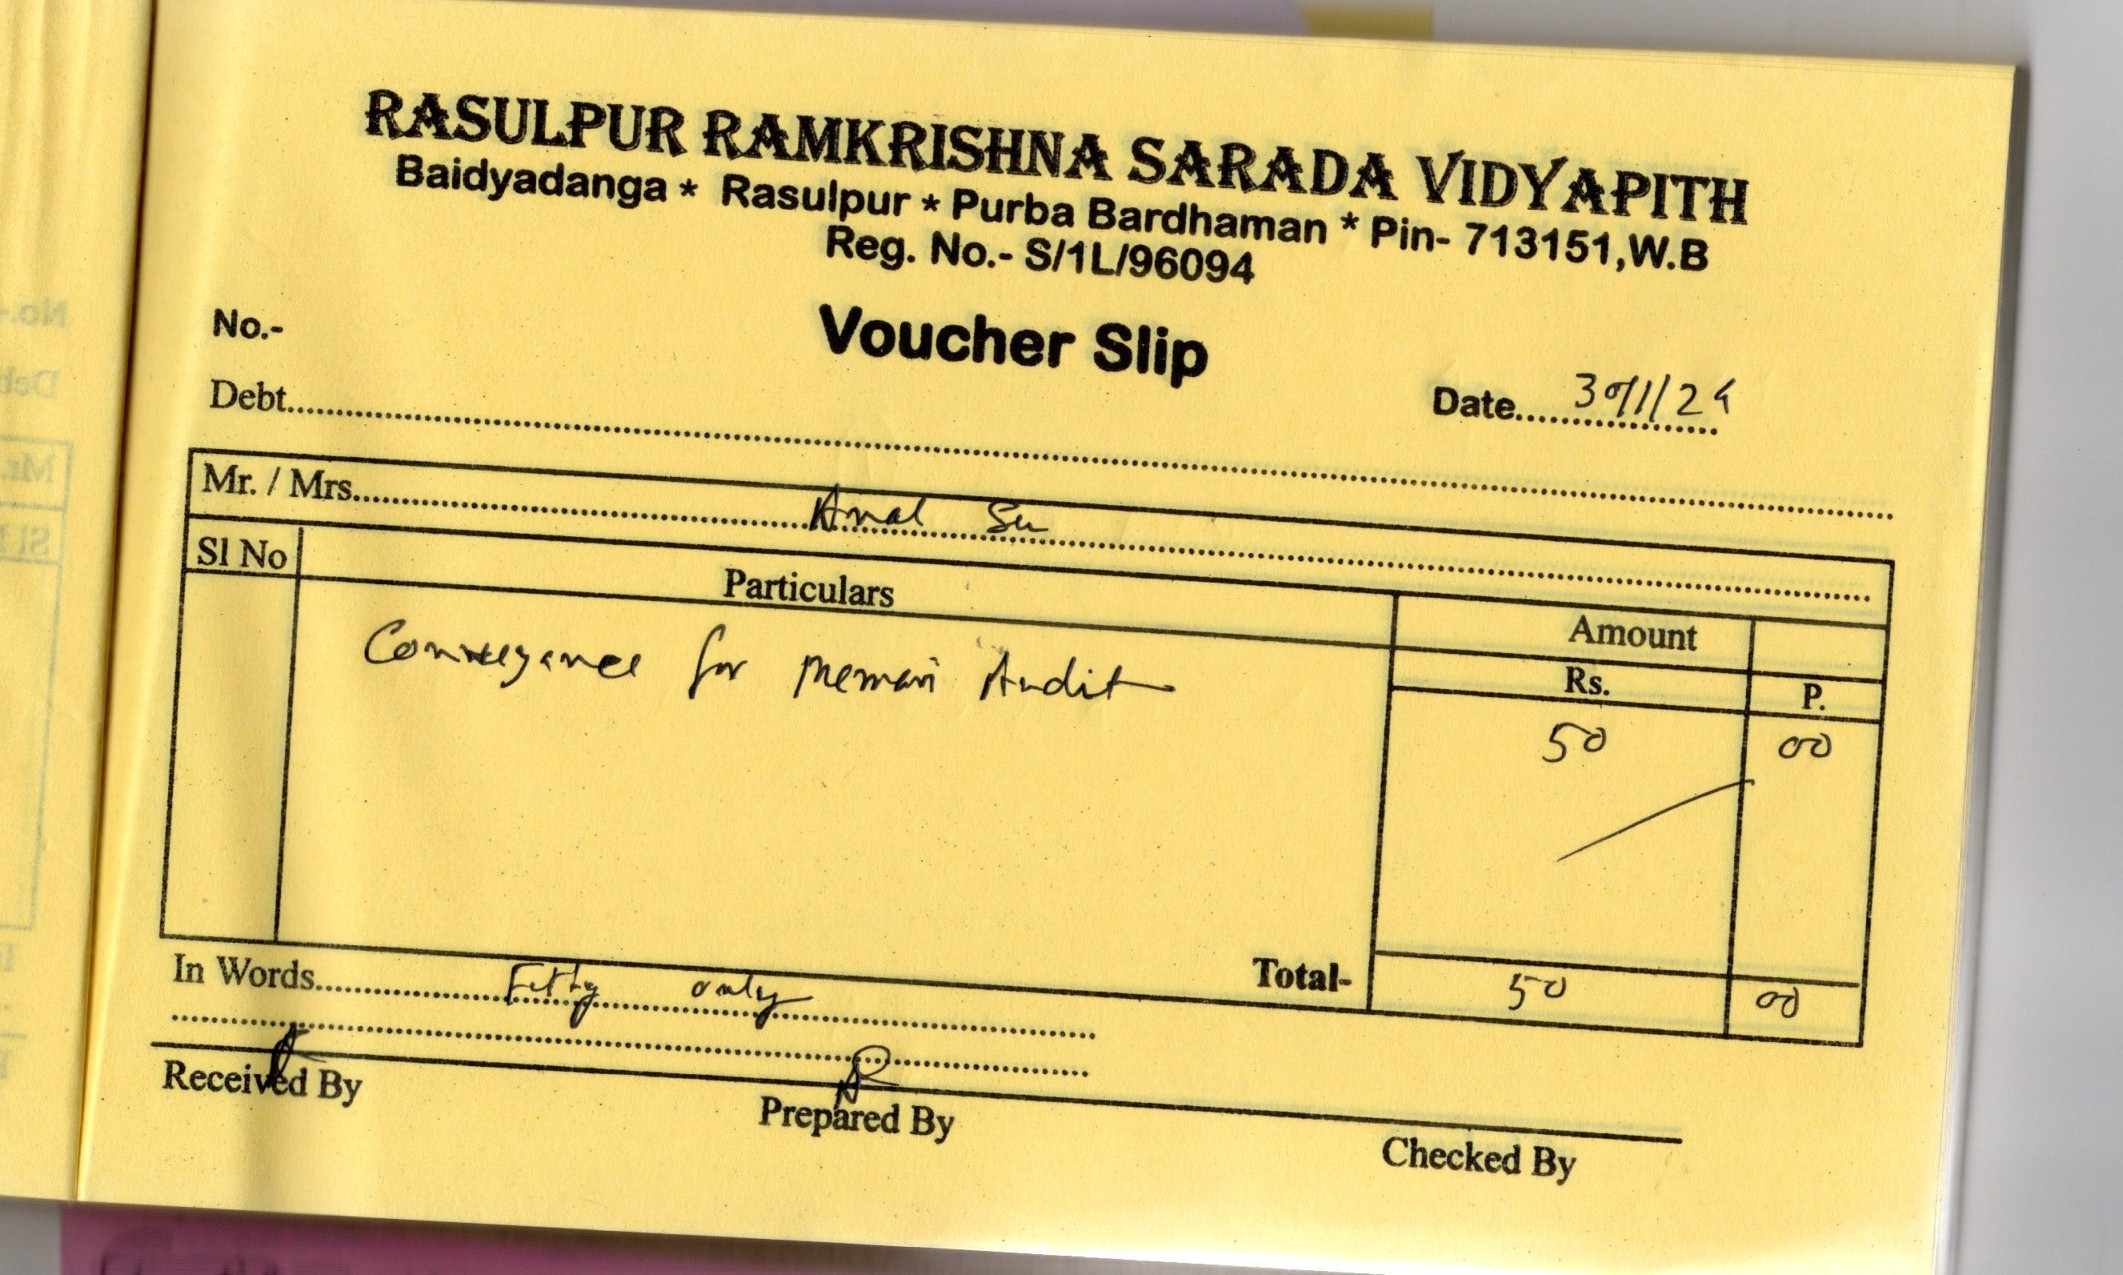 RASULPUR RAMKRISHNA SARADA VIDYAPITH
Baidyadanga * Rasulpur * Purba Bardhaman * Pin- 713151,W.B
Reg. No.- S/1L/96094
No.-
Voucher Slip
Debt
Date 30/1/24
Mr. / Mrs. Amal Sen
Sl No Particulars Amount
Rs. P.
Conveyance for Memari Audit 50 00
Total- 50 00
In Words Fifty only
Received By Prepared By Checked By